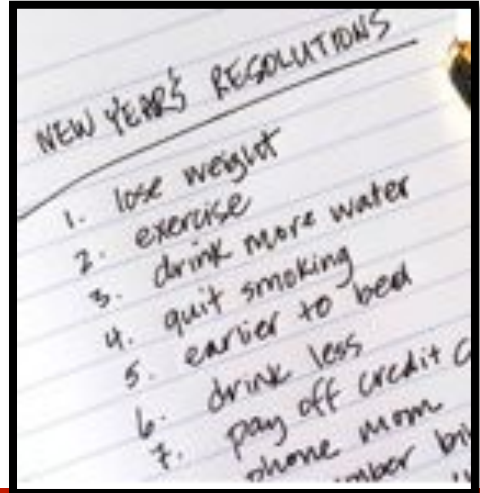 NEW YEAR'S RESOLUTIONS
1. lose weight
2. exercise
3. drink more water
4. quit smoking
5. earlier to bed
6. drink less
7. pay off credit c
phone mom